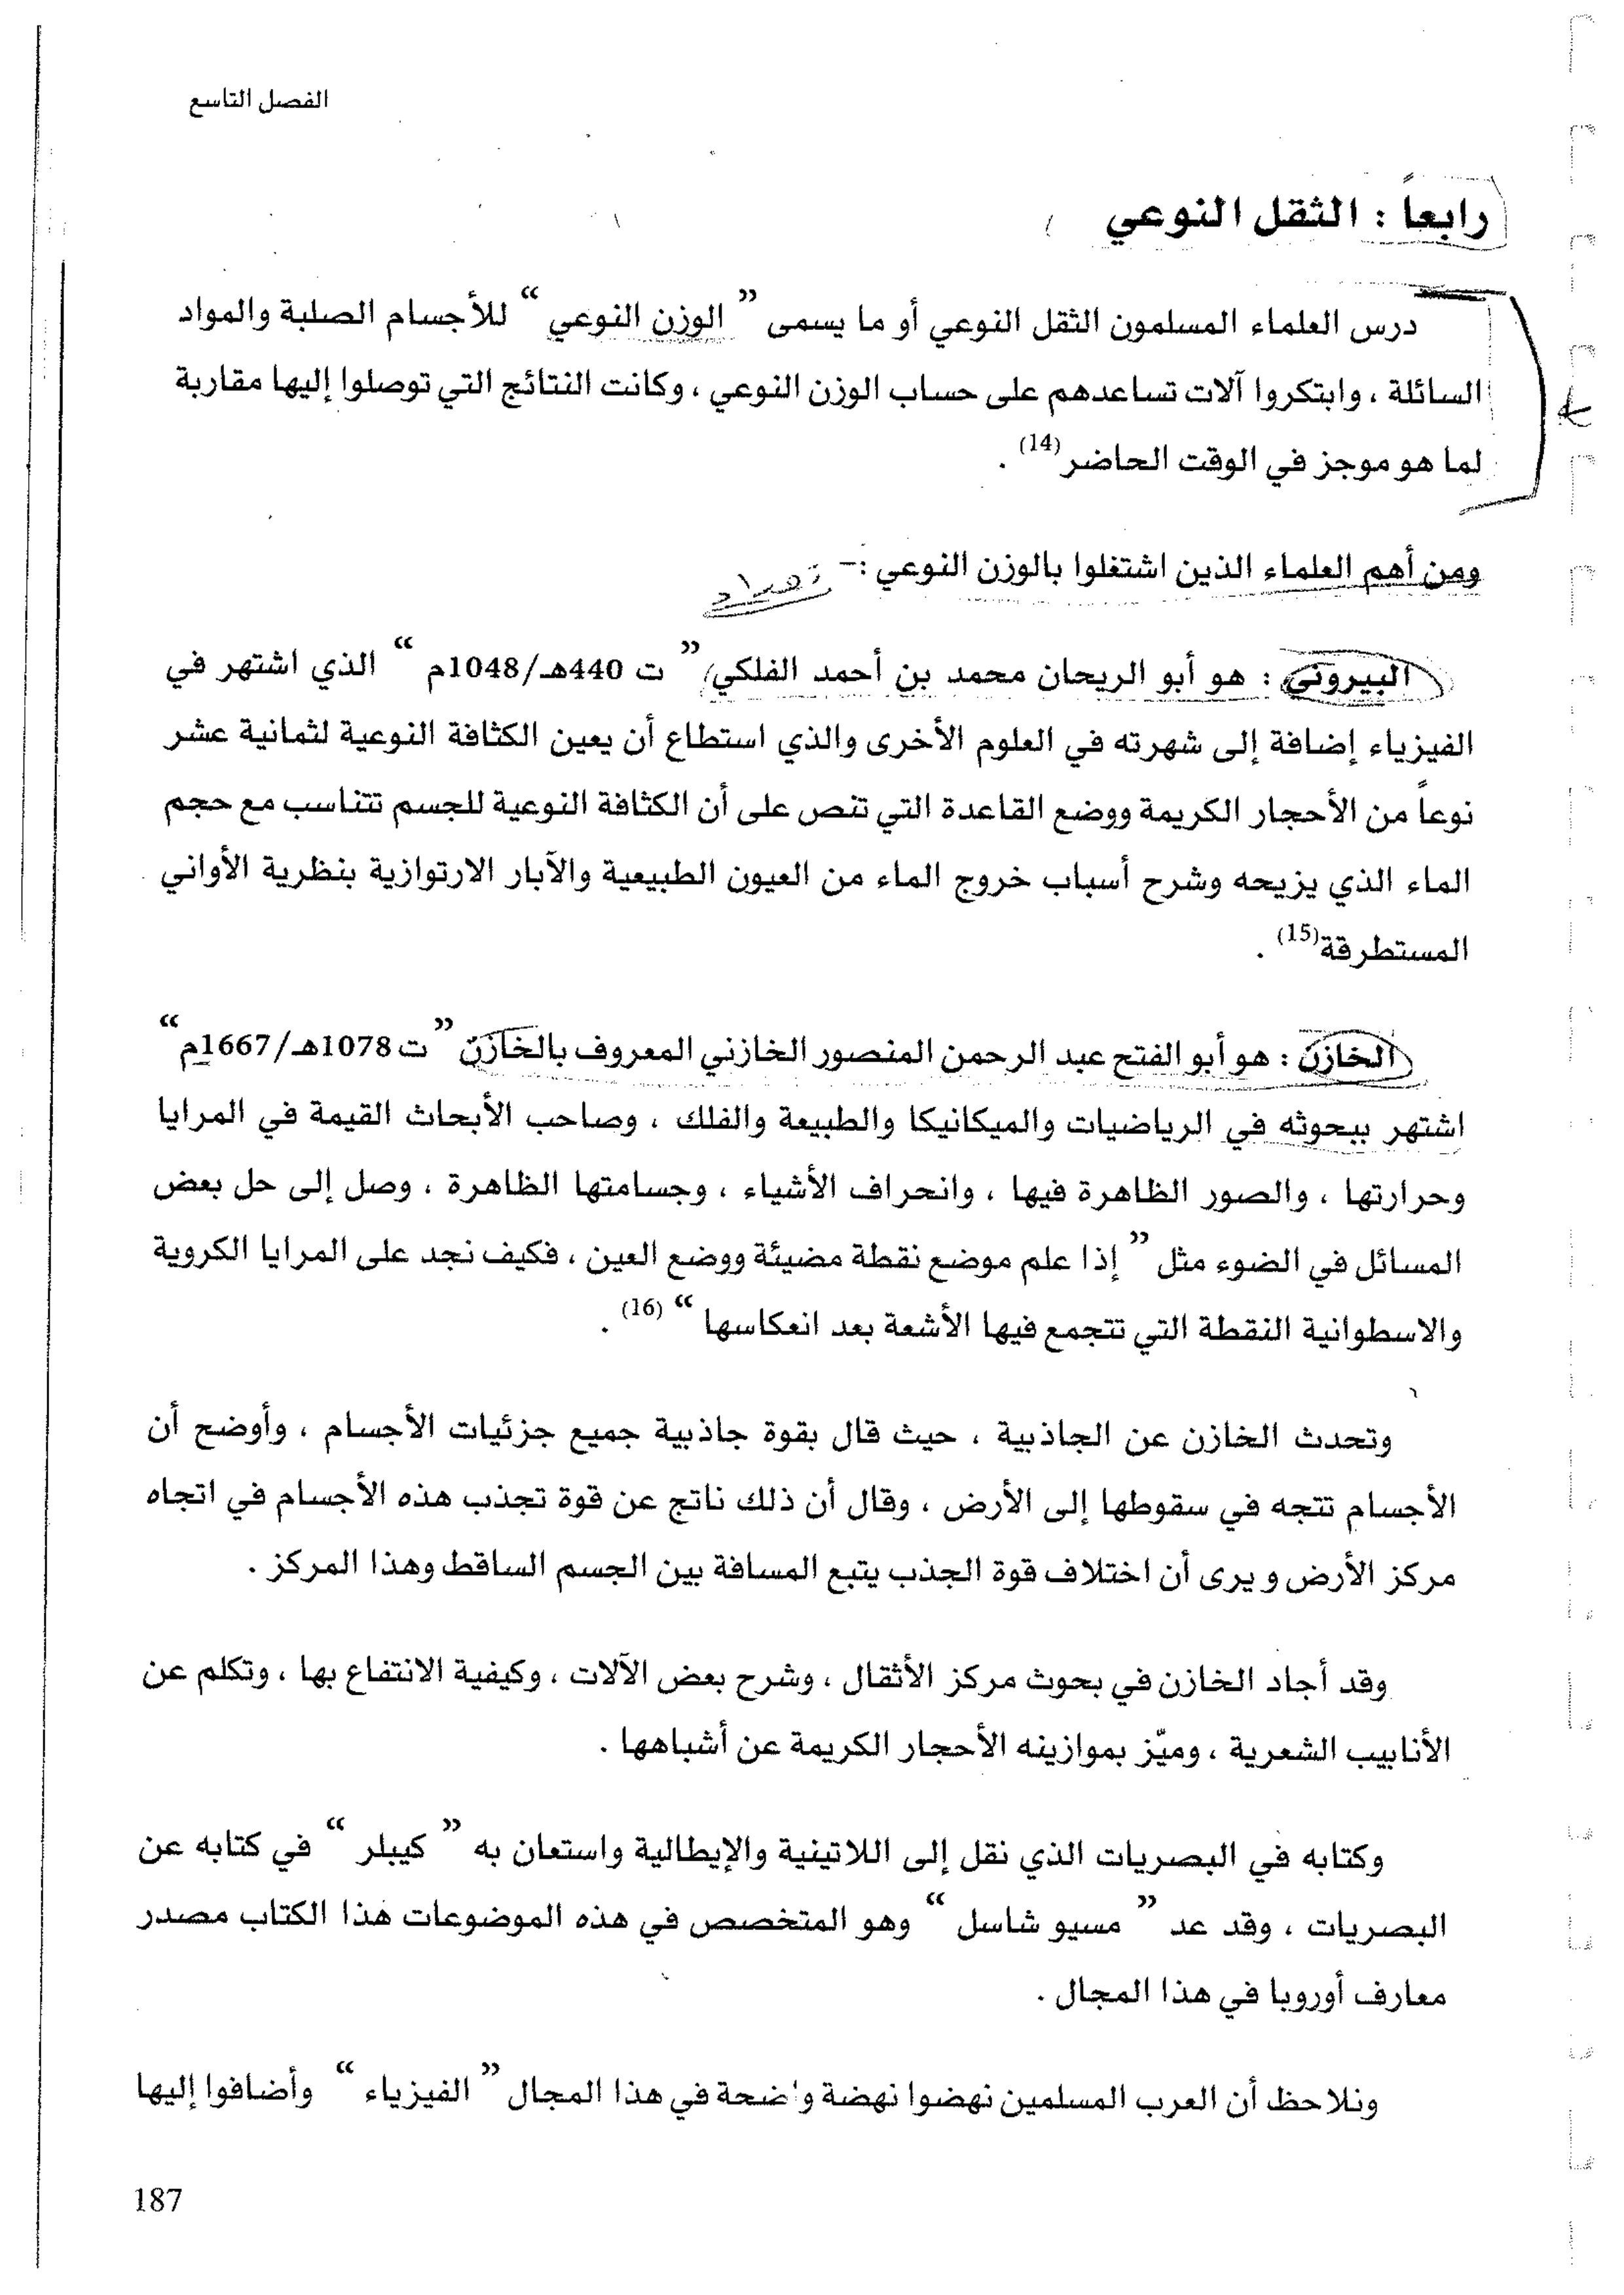 الفصل التاسع
رابعاً : الثقل النوعي
درس العلماء المسلمون الثقل النوعي أو ما يسمى " الوزن النوعي " للأجسام الصلبة والمواد
السائلة ، وابتكروا آلات تساعدهم على حساب الوزن النوعي ، وكانت النتائج التي توصلوا إليها مقاربة
لما هو موجز في الوقت الحاضر(14) .
ومن أهم العلماء الذين اشتغلوا بالوزن النوعي :- تعداد
البيروني : هو أبو الريحان محمد بن أحمد الفلكي " ت 440هـ/1048م " الذي اشتهر في
الفيزياء إضافة إلى شهرته في العلوم الأخرى والذي استطاع أن يعين الكثافة النوعية لثمانية عشر
نوعاً من الأحجار الكريمة ووضع القاعدة التي تنص على أن الكثافة النوعية للجسم تتناسب مع حجم
الماء الذي يزيحه وشرح أسباب خروج الماء من العيون الطبيعية والآبار الارتوازية بنظرية الأواني
المستطرقة(15) .
الخازن : هو أبو الفتح عبد الرحمن المنصور الخازني المعروف بالخازن " ت 1078هـ/1667م "
اشتهر ببحوثه في الرياضيات والميكانيكا والطبيعة والفلك ، وصاحب الأبحاث القيمة في المرايا
وحرارتها ، والصور الظاهرة فيها ، وانحراف الأشياء ، وجسامتها الظاهرة ، وصل إلى حل بعض
المسائل في الضوء مثل " إذا علم موضع نقطة مضيئة ووضع العين ، فكيف نجد على المرايا الكروية
والاسطوانية النقطة التي تتجمع فيها الأشعة بعد انعكاسها " (16) .
وتحدث الخازن عن الجاذبية ، حيث قال بقوة جاذبية جميع جزئيات الأجسام ، وأوضح أن
الأجسام تتجه في سقوطها إلى الأرض ، وقال أن ذلك ناتج عن قوة تجذب هذه الأجسام في اتجاه
مركز الأرض و يرى أن اختلاف قوة الجذب يتبع المسافة بين الجسم الساقط وهذا المركز .
وقد أجاد الخازن في بحوث مركز الأثقال ، وشرح بعض الآلات ، وكيفية الانتفاع بها ، وتكلم عن
الأنابيب الشعرية ، وميّز بموازينه الأحجار الكريمة عن أشباهها .
وكتابه في البصريات الذي نقل إلى اللاتينية والإيطالية واستعان به " كيبلر " في كتابه عن
البصريات ، وقد عد " مسيو شاسل " وهو المتخصص في هذه الموضوعات هذا الكتاب مصدر
معارف أوروبا في هذا المجال .
ونلاحظ أن العرب المسلمين نهضوا نهضة واضحة في هذا المجال " الفيزياء " وأضافوا إليها
187